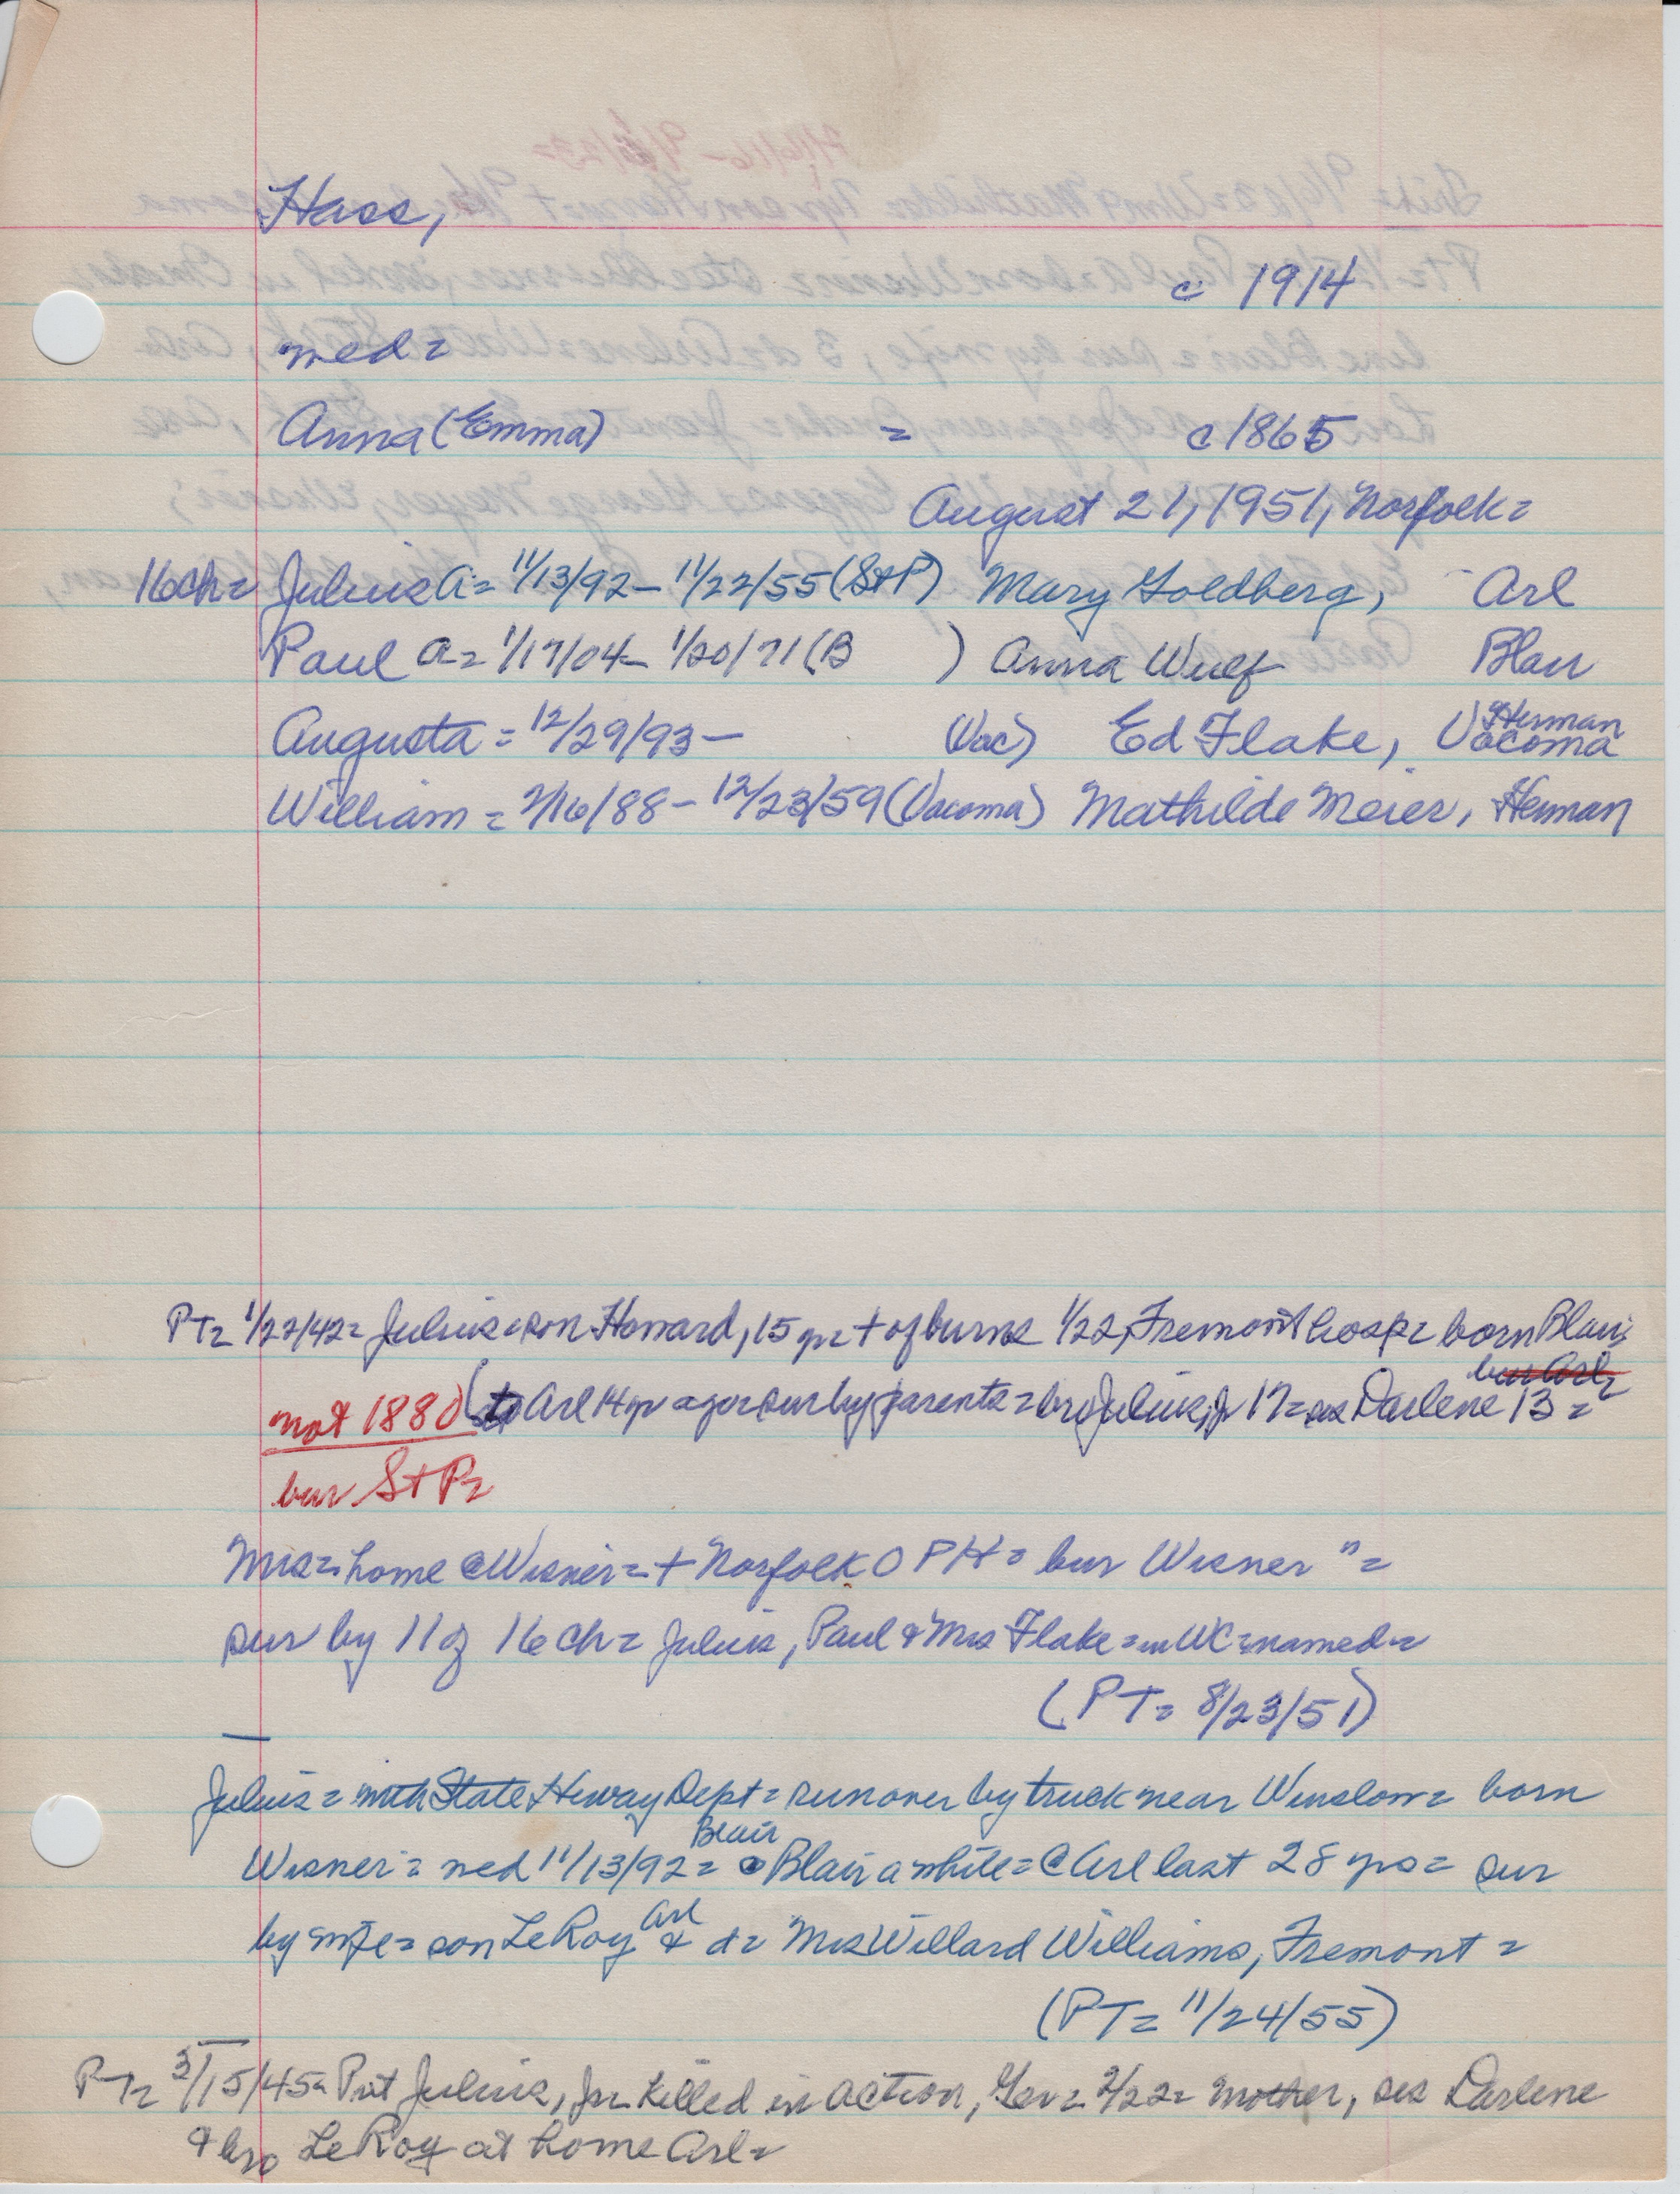 Hass,
c 1914
med =
Anna (Emma) = c 1865
August 21, 1951, Norfolk =
16 ch = Julius A = 11/13/92 - 11/22/55 (St P) Mary Goldberg, Arl
Paul A = 1/17/04 - 1/20/71 (B ) Anna Wulf Blair
Augusta = 12/29/93 - (Vac) Ed Flake, Herman
Vacoma
William = 2/16/88 - 12/23/59 (Vacoma) Mathilde Meier, Herman
PT = 1/27/42 = Julius = son Howard, 15 yr = + of burns 1/22, Fremont hosp = born Blair,
bur Arl =
not 1880 (to Arl 14 yr ago = sur by parents = bro Julius, Jr 17 = sis Darlene 13 =
bur St P =
Mrs = home @ Wisner = + Norfolk O P H = bur Wisner " =
sur by 11 of 16 ch = Julius, Paul & Mrs Flake = in WC = named =
(PT = 8/23/51)
Julius = with State Hiway Dept = run over by truck near Winslow = born
Blair
Wisner = ned 11/13/92 = @ Blair a while = @ Arl last 28 yrs = sur
Arl
by wife = son LeRoy & d = Mrs Willard Williams, Fremont =
(PT = 11/24/55)
PT = 3/15/45 = Pvt Julius, Jr = Killed in action, Ger = 2/22 = mother, sis Darlene
& bro LeRoy at home Arl =